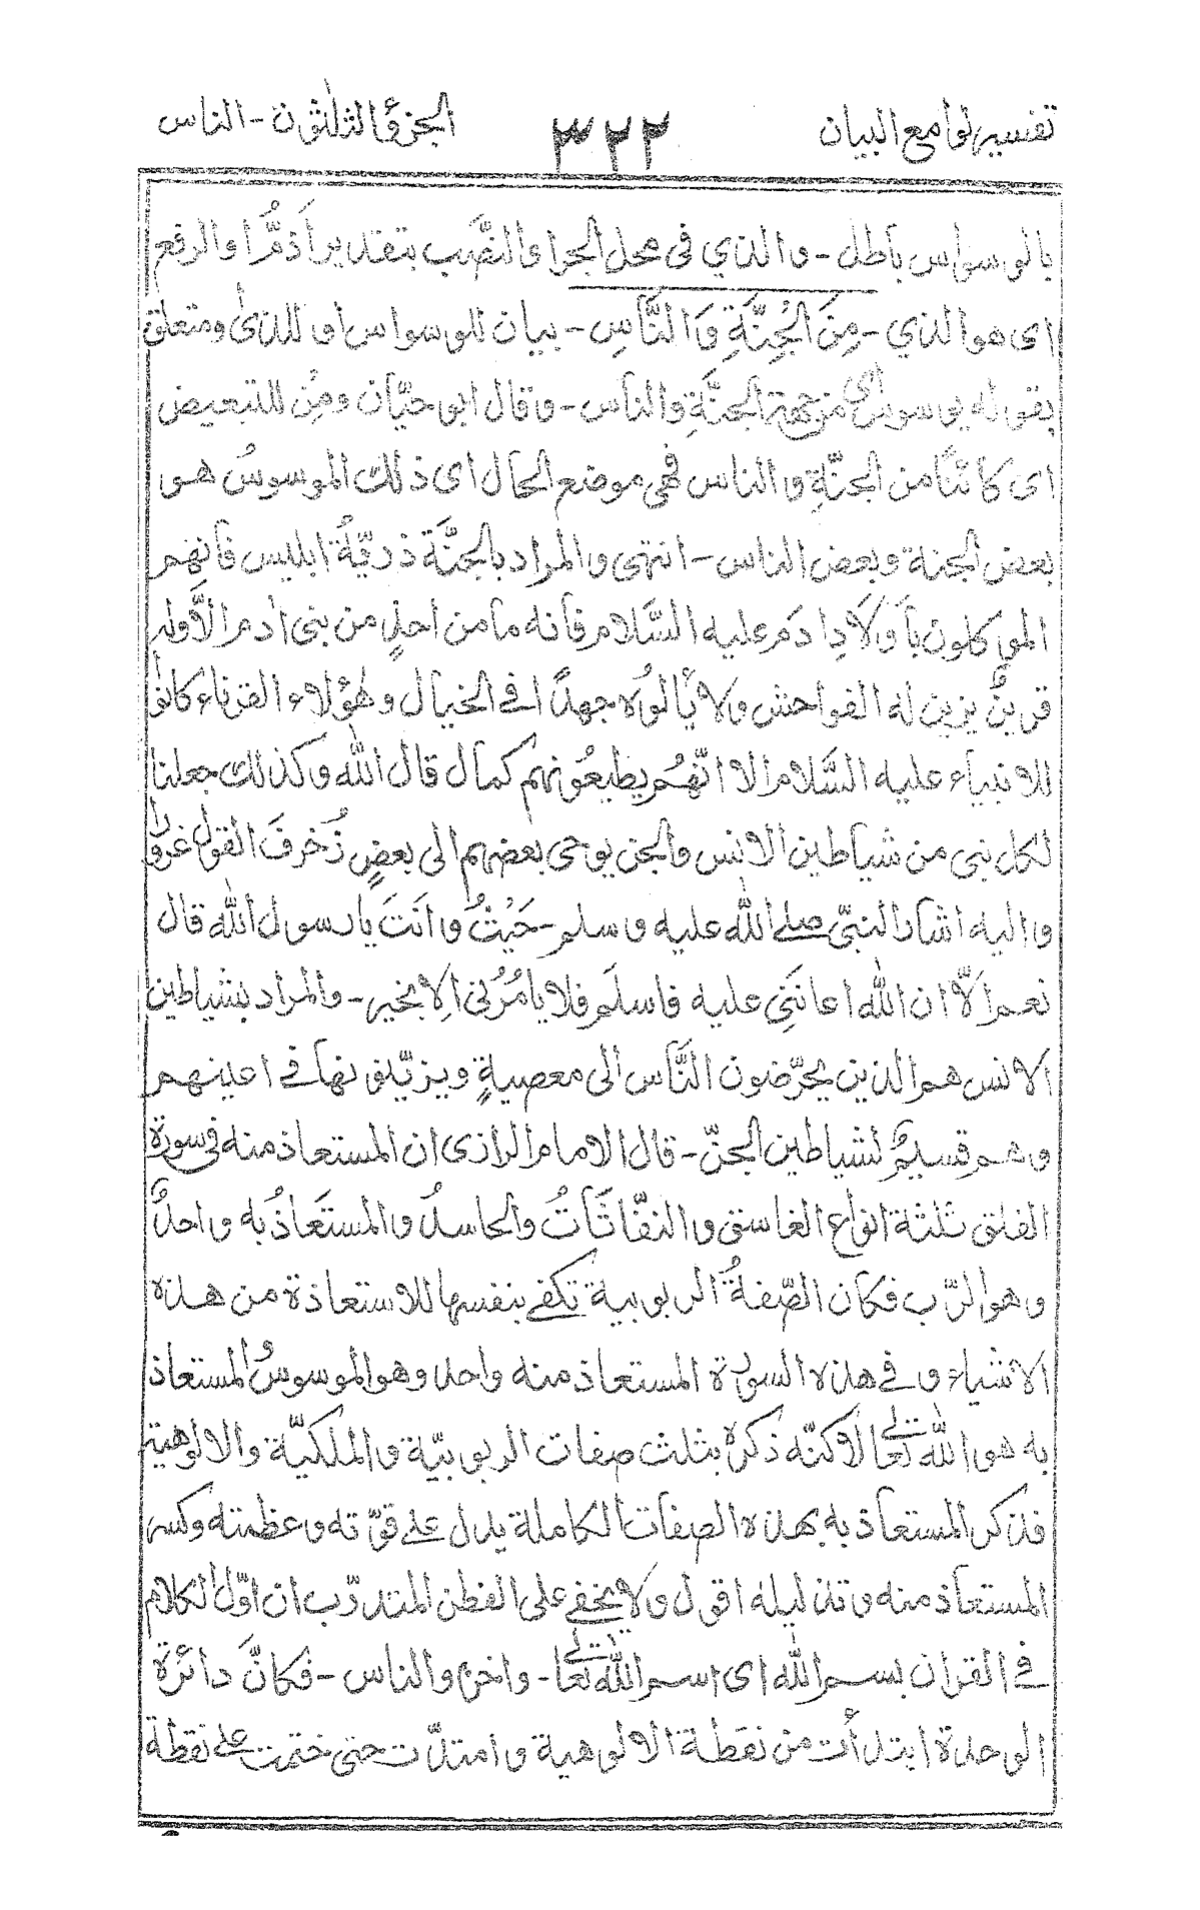 تفسير لوامع البيان ٣٢٢ الجزء الثلثون - الناس
بالوسواس باطل - والذي فى محل الجر او النَّصَب بتقدير اَذمُّ او الرفع
اى هو الذي - مِنَ الْجِنَّةِ وَالنَّاسِ - بيان للوسواس او للذى ومتعلق
بقوله يوسوس اى من جهة الجنَّةِ والناس - وقال ابو حيّان ومِن للتبعيض
اى كائنًا من الجنّةِ والناس فهى موضع الحال اى ذلك الموسوسُ هو
بعض الجنة وبعض الناس - انتهى والمراد بالجنَّة ذريّةُ ابليس فانهم
الموكلون باَولَادِ ادَم عليه السَّلام فانه ما من احدٍ من بنى ادم الاَّ وله
قرينٌ يزين له الفواحش ولا يألُوُه جهدًا فى الخيال وهٰؤلاء القرناء كانوا
للانبياء عليه السَّلام الا انّهُم يطيعُونهم كما قال الله وكذلك جعلنا
لكل نبى من شياطين الانس والجن يوحى بعضهم الى بعضٍ زُخرفَ القول غرورا
واليه اشار النبّى صلے الله عليه وسلم - حَيْثُ وانَتَ يا رسول الله قال
نعم الاّ ان الله اعاننِي عليه فاسلَم فلا يامُرُنى الا بخير - والمراد بشياطين
الانس هم الذين يحرّضون النَّاس الى معصيةٍ ويزيّنونها فى اعينهم
وهم قسيمٌ لشياطين الجنّ - قال الامام الرازى ان المستعاذ منه فى سورة
الفلق ثلثة انواع الغاسق والنفّاثَاتُ والحاسدُ والمستَعَاذُ به واحدٌ
وهو الرّب فكان الصّفةُ الربوبية تكفے بنفسها للاستعاذة من هذه
الاشياء وفے هذه السورة المستعاذ منه واحد وهو الموسوسُ والمستعاذ
به هو الله تعالے لاكنّه ذكرہ بثلث صفات الربوبيّة والملكيّة والالوهية
فذكر المستعاذ به بهذه الصفات الكاملة يدل علے قوّته وعظمته وكسر
المستعاذ منه وتذليله اقول ولا يخفے على الفطن المتدرّب ان اوّل الكلام
فے القران بسم الله اى اسم الله تعالے - واخره والناس - فكانَّ دائرة
الوحدة ابتدأت من نقطة الالوهية وامتدّت حتى ختمت علے نقطة